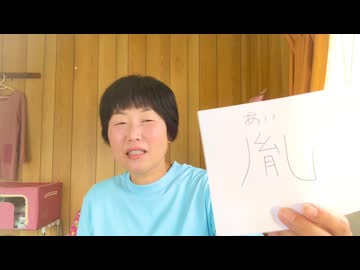 あい
胤